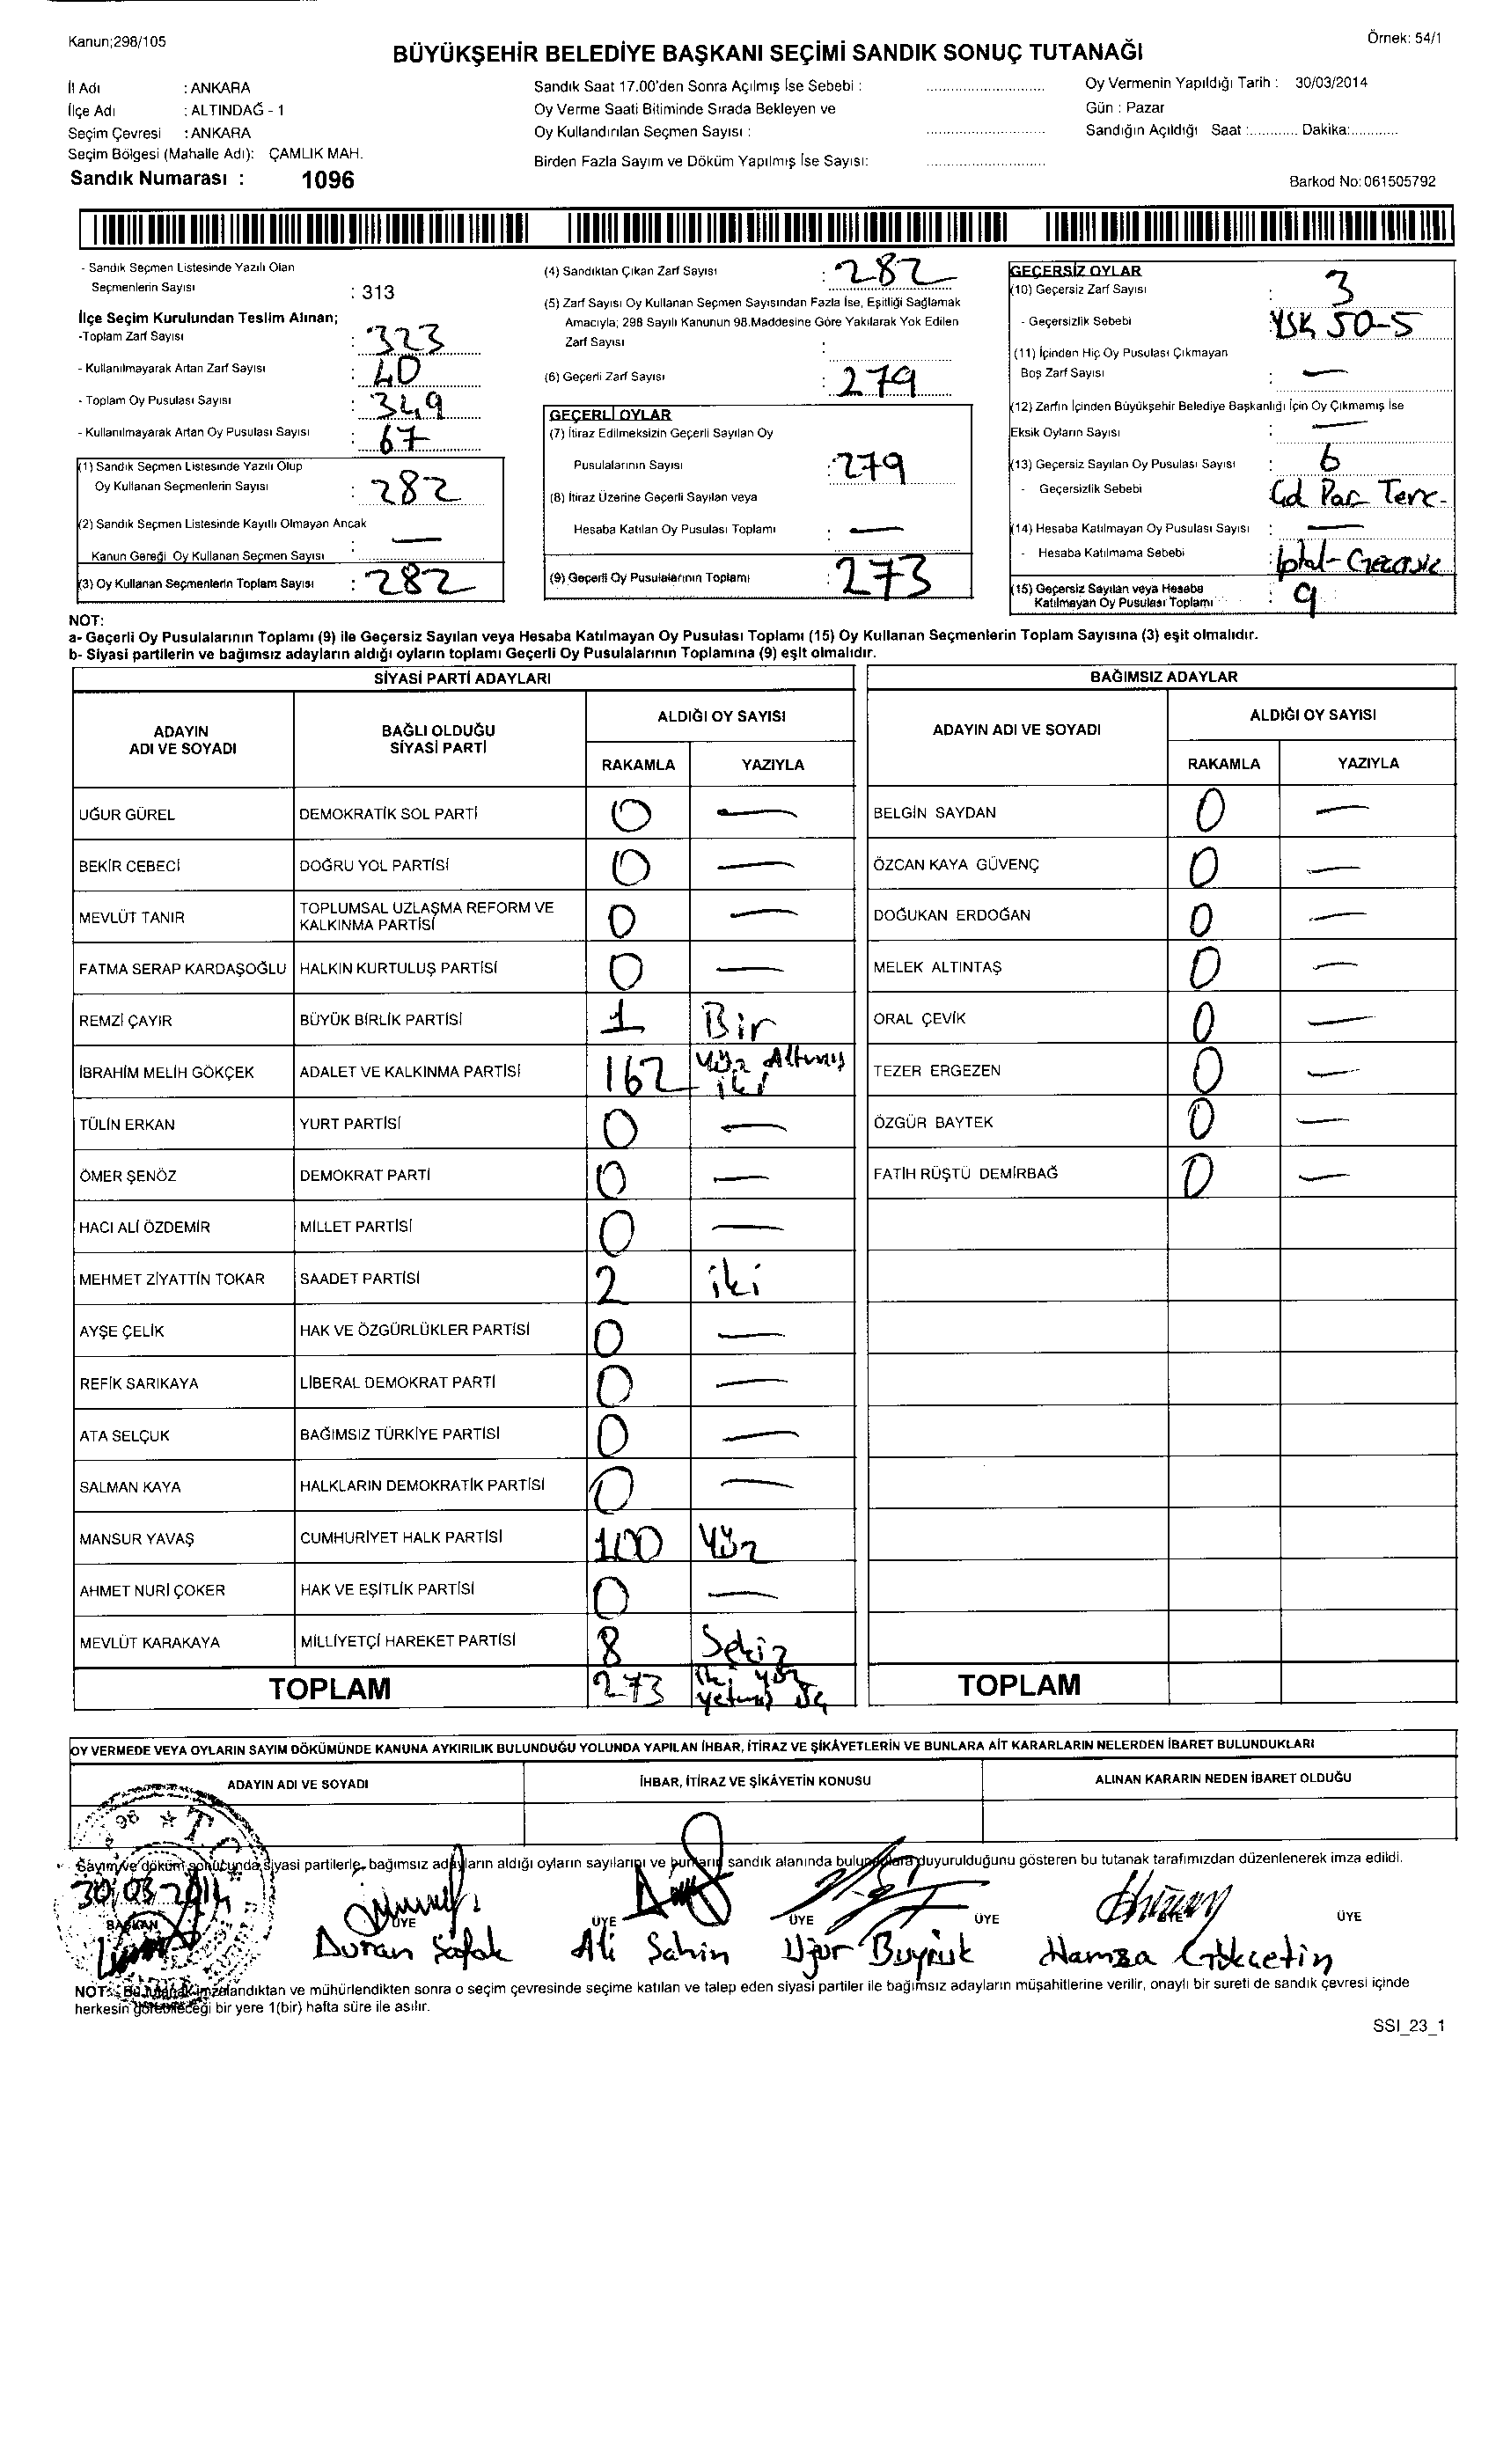 Kanun;298/105
Örnek: 54/1
BÜYÜKŞEHİR BELEDİYE BAŞKANI SEÇİMİ SANDIK SONUÇ TUTANAĞI
İl Adı : ANKARA
İlçe Adı : ALTINDAĞ - 1
Seçim Çevresi : ANKARA
Seçim Bölgesi (Mahalle Adı): ÇAMLIK MAH.
Sandık Numarası : 1096
Sandık Saat 17.00'den Sonra Açılmış İse Sebebi :
Oy Verme Saati Bitiminde Sırada Bekleyen ve
Oy Kullandırılan Seçmen Sayısı :
Birden Fazla Sayım ve Döküm Yapılmış İse Sayısı:
Oy Vermenin Yapıldığı Tarih : 30/03/2014
Gün : Pazar
Sandığın Açıldığı Saat :............ Dakika:............
Barkod No: 061505792
- Sandık Seçmen Listesinde Yazılı Olan
Seçmenlerin Sayısı : 313
İlçe Seçim Kurulundan Teslim Alınan;
-Toplam Zarf Sayısı : 323
- Kullanılmayarak Artan Zarf Sayısı : 40
- Toplam Oy Pusulası Sayısı : 349
- Kullanılmayarak Artan Oy Pusulası Sayısı : 67
(1) Sandık Seçmen Listesinde Yazılı Olup
Oy Kullanan Seçmenlerin Sayısı : 282
(2) Sandık Seçmen Listesinde Kayıtlı Olmayan Ancak
Kanun Gereği Oy Kullanan Seçmen Sayısı : —
(3) Oy Kullanan Seçmenlerin Toplam Sayısı : 282
(4) Sandıktan Çıkan Zarf Sayısı : 282
(5) Zarf Sayısı Oy Kullanan Seçmen Sayısından Fazla İse, Eşitliği Sağlamak
Amacıyla; 298 Sayılı Kanunun 98.Maddesine Göre Yakılarak Yok Edilen
Zarf Sayısı :
(6) Geçerli Zarf Sayısı : 279
GEÇERLİ OYLAR
(7) İtiraz Edilmeksizin Geçerli Sayılan Oy
Pusulalarının Sayısı : 279
(8) İtiraz Üzerine Geçerli Sayılan veya
Hesaba Katılan Oy Pusulası Toplamı : —
(9) Geçerli Oy Pusulalarının Toplamı : 273
GEÇERSİZ OYLAR
(10) Geçersiz Zarf Sayısı : 3
- Geçersizlik Sebebi : YSK 50-5
(11) İçinden Hiç Oy Pusulası Çıkmayan
Boş Zarf Sayısı : —
(12) Zarfın İçinden Büyükşehir Belediye Başkanlığı İçin Oy Çıkmamış İse
Eksik Oyların Sayısı : —
(13) Geçersiz Sayılan Oy Pusulası Sayısı : 6
- Geçersizlik Sebebi
(14) Hesaba Katılmayan Oy Pusulası Sayısı : —
- Hesaba Katılmama Sebebi :
(15) Geçersiz Sayılan veya Hesaba
Katılmayan Oy Pusulası Toplamı : 9
NOT:
a- Geçerli Oy Pusulalarının Toplamı (9) ile Geçersiz Sayılan veya Hesaba Katılmayan Oy Pusulası Toplamı (15) Oy Kullanan Seçmenlerin Toplam Sayısına (3) eşit olmalıdır.
b- Siyasi partilerin ve bağımsız adayların aldığı oyların toplamı Geçerli Oy Pusulalarının Toplamına (9) eşit olmalıdır.
SİYASİ PARTİ ADAYLARI
ADAYIN ADI VE SOYADI
BAĞLI OLDUĞU SİYASİ PARTİ
ALDIĞI OY SAYISI
RAKAMLA YAZIYLA
UĞUR GÜREL DEMOKRATİK SOL PARTİ 0 —
BEKİR CEBECİ DOĞRU YOL PARTİSİ 0 —
MEVLÜT TANIR TOPLUMSAL UZLAŞMA REFORM VE KALKINMA PARTİSİ 0 —
FATMA SERAP KARDAŞOĞLU HALKIN KURTULUŞ PARTİSİ 0 —
REMZİ ÇAYIR BÜYÜK BİRLİK PARTİSİ 1 Bir
İBRAHİM MELİH GÖKÇEK ADALET VE KALKINMA PARTİSİ 162 Yüz Altmış iki
TÜLİN ERKAN YURT PARTİSİ 0 —
ÖMER ŞENÖZ DEMOKRAT PARTİ 0 —
HACI ALİ ÖZDEMİR MİLLET PARTİSİ 0 —
MEHMET ZİYATTİN TOKAR SAADET PARTİSİ 2 iki
AYŞE ÇELİK HAK VE ÖZGÜRLÜKLER PARTİSİ 0 —
REFİK SARIKAYA LİBERAL DEMOKRAT PARTİ 0 —
ATA SELÇUK BAĞIMSIZ TÜRKİYE PARTİSİ 0 —
SALMAN KAYA HALKLARIN DEMOKRATİK PARTİSİ 0 —
MANSUR YAVAŞ CUMHURİYET HALK PARTİSİ 100 Yüz
AHMET NURİ ÇOKER HAK VE EŞİTLİK PARTİSİ 0 —
MEVLÜT KARAKAYA MİLLİYETÇİ HAREKET PARTİSİ 8 Sekiz
TOPLAM 273 iki yüz yetmiş üç
BAĞIMSIZ ADAYLAR
ADAYIN ADI VE SOYADI
ALDIĞI OY SAYISI
RAKAMLA YAZIYLA
BELGİN SAYDAN 0 —
ÖZCAN KAYA GÜVENÇ 0 —
DOĞUKAN ERDOĞAN 0 —
MELEK ALTINTAŞ 0 —
ORAL ÇEVİK 0 —
TEZER ERGEZEN 0 —
ÖZGÜR BAYTEK 0 —
FATİH RÜŞTÜ DEMİRBAĞ 0 —
TOPLAM
OY VERMEDE VEYA OYLARIN SAYIM DÖKÜMÜNDE KANUNA AYKIRILIK BULUNDUĞU YOLUNDA YAPILAN İHBAR, İTİRAZ VE ŞİKÂYETLERİN VE BUNLARA AİT KARARLARIN NELERDEN İBARET BULUNDUKLARI
ADAYIN ADI VE SOYADI
İHBAR, İTİRAZ VE ŞİKÂYETİN KONUSU
ALINAN KARARIN NEDEN İBARET OLDUĞU
Sayım ve döküm sonucunda siyasi partilerle, bağımsız adayların aldığı oyların sayılarını ve bunların sandık alanında bulunanlara duyurulduğunu gösteren bu tutanak tarafımızdan düzenlenerek imza edildi.
30.03.2014
BAŞKAN ÜYE ÜYE ÜYE ÜYE ÜYE ÜYE
Duran Şafak Ali Şahin Uğur Buyruk Hamza Gökçetin
NOT: Bu tutanak imzalandıktan ve mühürlendikten sonra o seçim çevresinde seçime katılan ve talep eden siyasi partiler ile bağımsız adayların müşahitlerine verilir, onaylı bir sureti de sandık çevresi içinde
herkesin görebileceği bir yere 1(bir) hafta süre ile asılır.
SSI_23_1